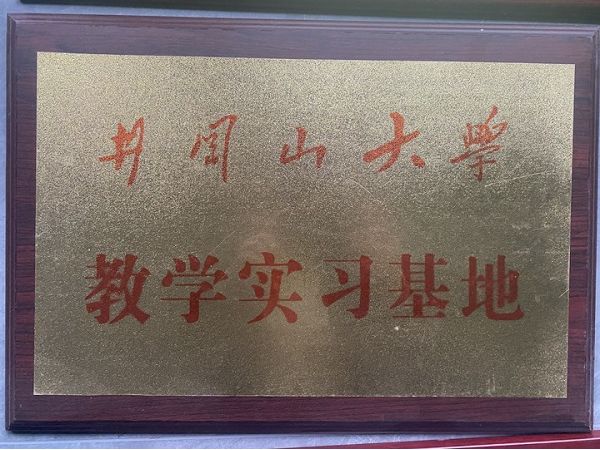 井冈山大学
教学实习基地